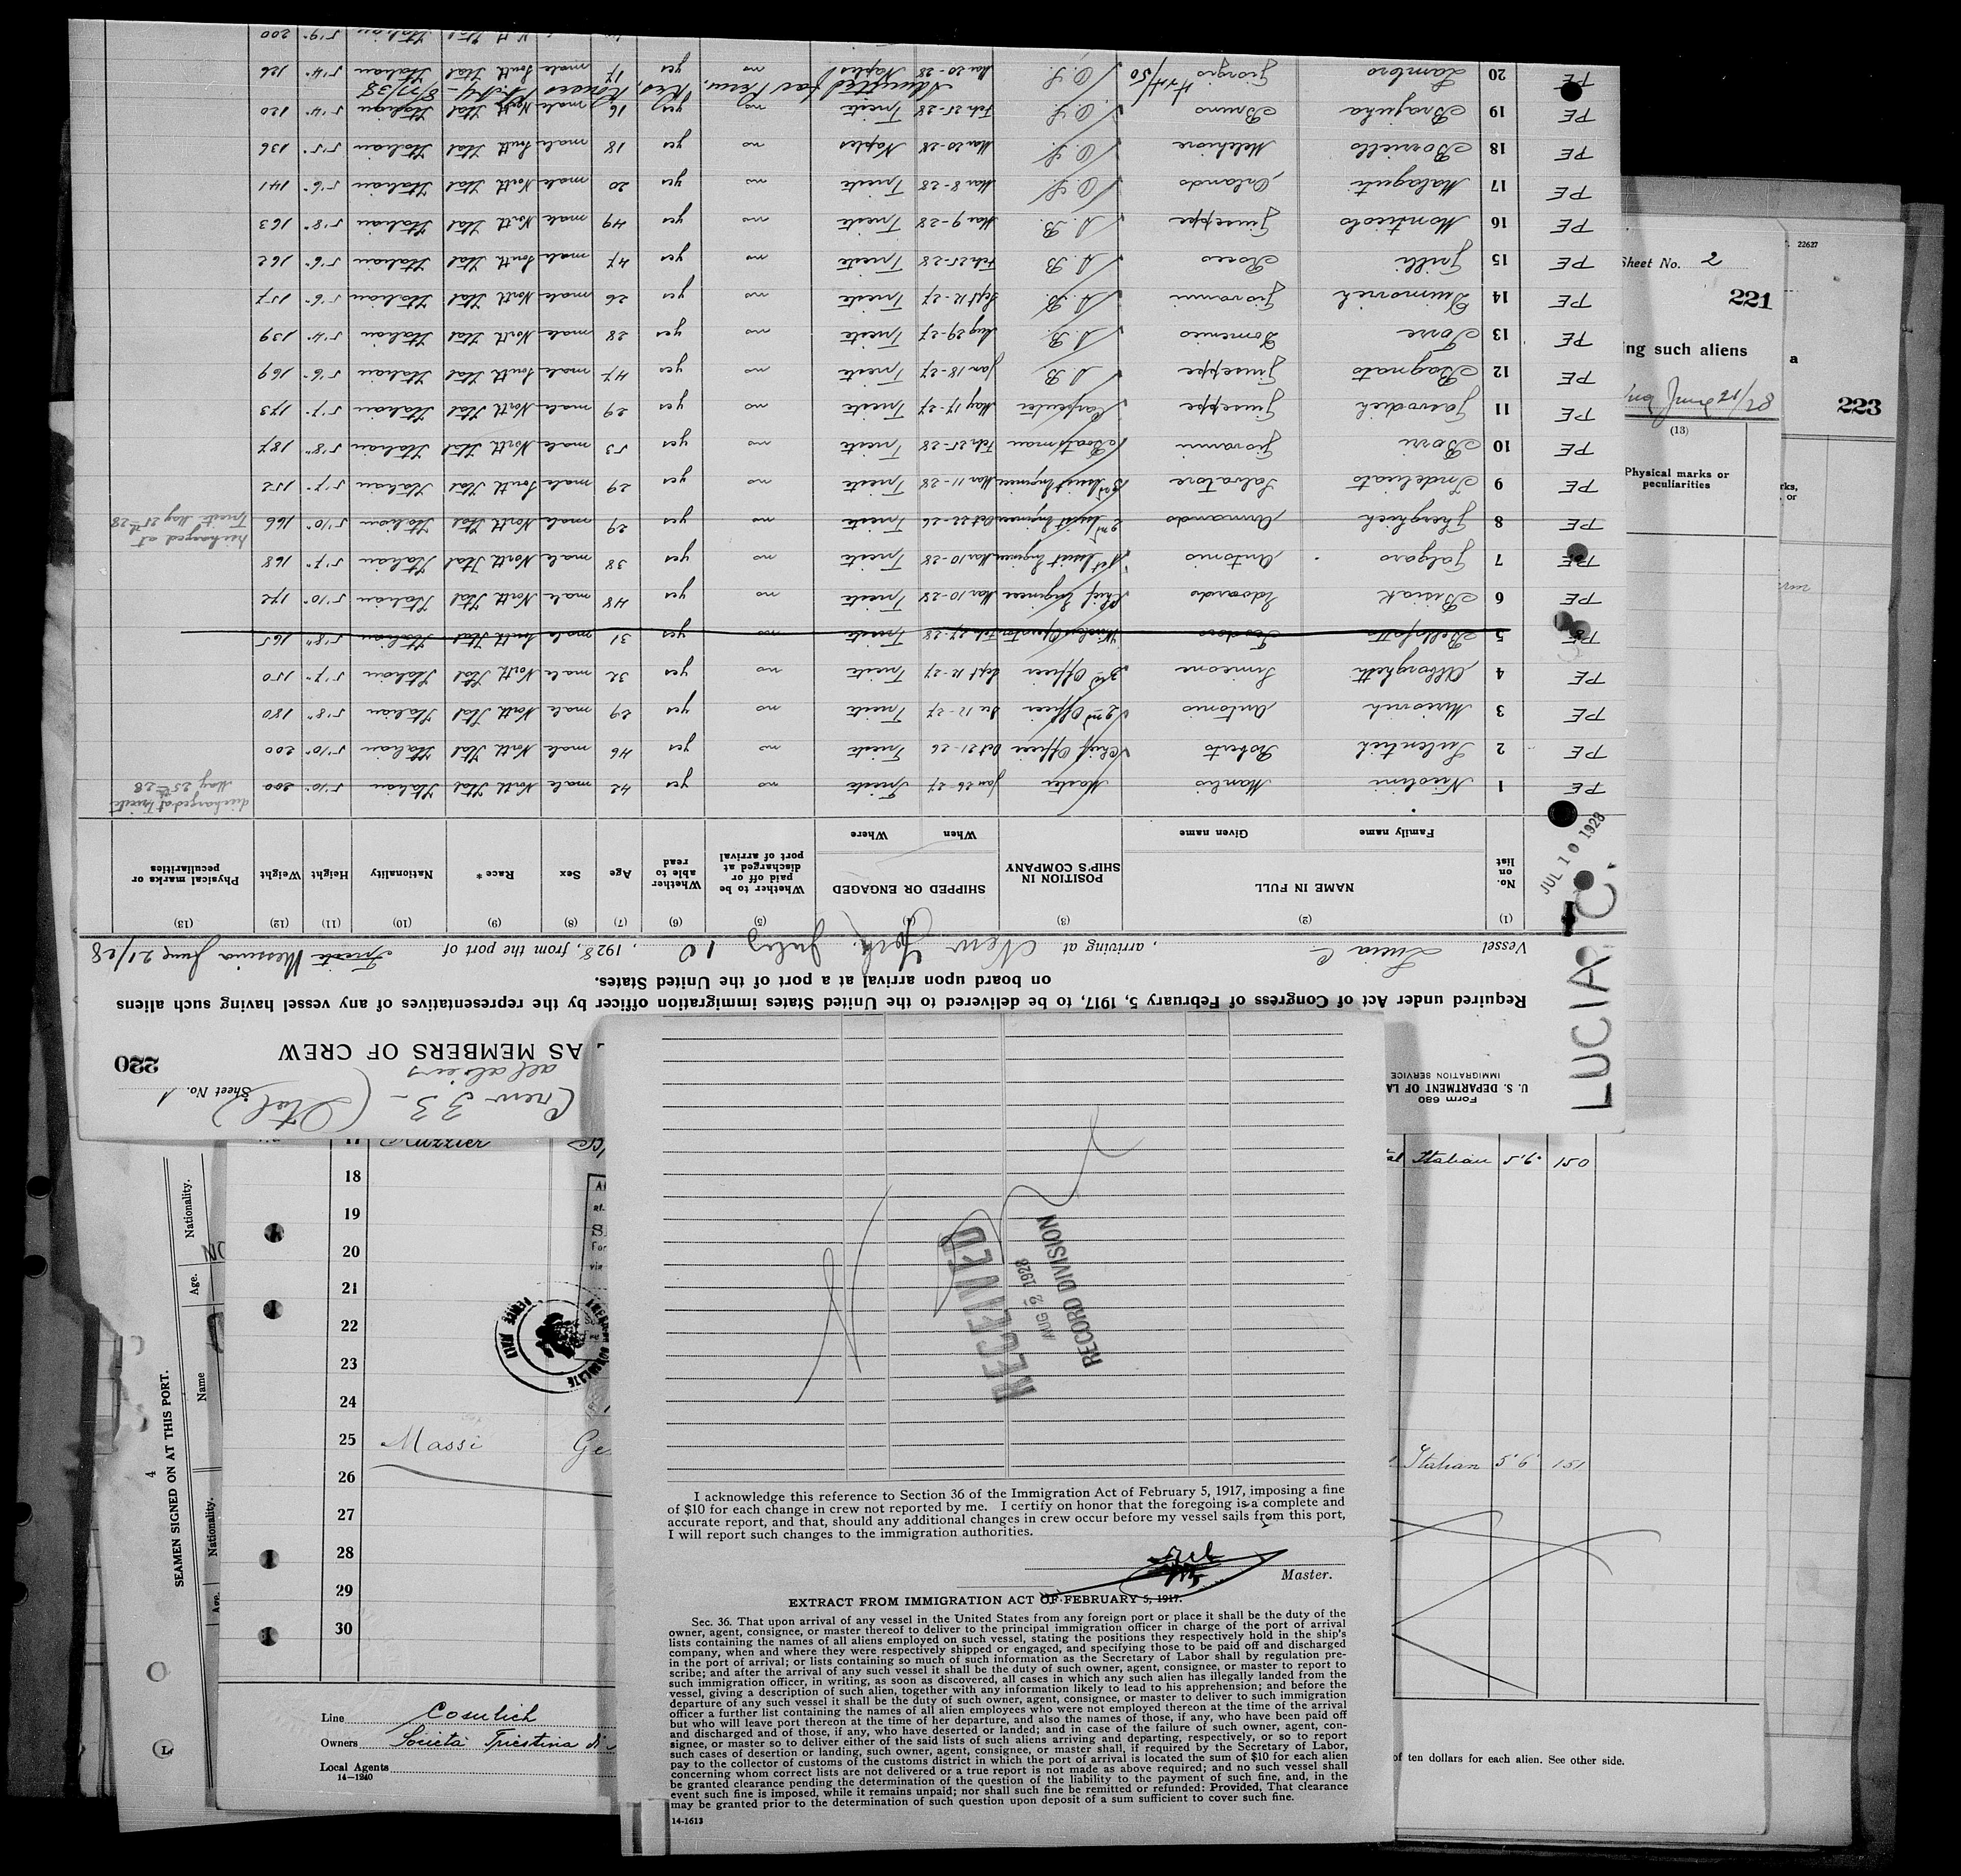 Form 680
U. S. DEPARTMENT OF LA
IMMIGRATION SERVICE
LUCIA C.
JUL 10 1928
Crew 33 – (Ital)
all aliens
Sheet No. 1
220
AS MEMBERS OF CREW
Required under Act of Congress of February 5, 1917, to be delivered to the United States immigration officer by the representatives of any vessel having such aliens
on board upon arrival at a port of the United States.
Vessel Lucia C , arriving at New York, July 10 , 1928, from the port of Trieste Messina June 21/28
(1) (2) (3) (4) (5) (6) (7) (8) (9) (10) (11) (12) (13)
No. on list NAME IN FULL POSITION IN SHIP'S COMPANY SHIPPED OR ENGAGED Whether to be paid off or discharged at port of arrival Whether able to read Age Sex Race * Nationality Height Weight Physical marks or peculiarities
Family name Given name When Where
PE 1 Nicolini Manlio Master Jan 26-27 Trieste no yes 42 male North Ital Italian 5'10" 200 discharged at Trieste May 25th 28
PE 2 Roberto Chief Officer Oct 21-26 Trieste no yes 46 male North Ital Italian 5'10" 200
PE 3 Antonio 2nd Officer Trieste no yes 29 male North Ital Italian 5'8" 180
PE 4 Simeone 3rd Officer Sept 12-27 Trieste no yes 32 male North Ital Italian 5'7" 150
PE 5 Teodoro Wireless Operator Feb 27-28 Trieste no yes 31 male South Ital Italian 5'8" 165
PE 6 Bisiak Edoardo Chief Engineer Mar 10-28 Trieste no yes 48 male North Ital Italian 5'10" 172
PE 7 Galgaro Antonio 1st Assist Engineer Mar 10-28 Trieste no yes 38 male North Ital Italian 5'7" 168
PE 8 Gherghich Armando 2nd Assist Engineer Oct 22-26 Trieste no yes 29 male North Ital Italian 5'10" 166 discharged at Trieste May 25th 28
PE 9 Indelicato Salvatore 3rd Assist Engineer Mar 11-28 Trieste no yes 29 male South Ital Italian 5'7" 152
PE 10 Bori Giovanni Boatsman Feb 25-28 Trieste no yes 53 male North Ital Italian 5'8" 187
PE 11 Giuseppe Carpenter May 17-27 Trieste no yes 29 male North Ital Italian 5'7" 173
PE 12 Bagnato Giuseppe A B Jan 18-27 Trieste no yes 47 male South Ital Italian 5'6" 169
PE 13 Torre Domenico A. B Aug 29-27 Trieste no yes 28 male North Ital Italian 5'4" 139
PE 14 Giovanni A. B. Sept 12-27 Trieste no yes 26 male North Ital Italian 5'6" 157
PE 15 Grilli Rocco A. B Feb 25-28 Trieste no yes 47 male South Ital Italian 5'6" 162
PE 16 Monticolo Giuseppe A. B. Mar 9-28 Trieste no yes 49 male North Ital Italian 5'8" 163
PE 17 Malaguti Orlando O. S Mar 8-28 Trieste no yes 20 male North Ital Italian 5'6" 141
PE 18 Borriello Melchiore O. S Mar 20-28 Naples no yes 18 male South Ital Italian 5'5" 136
PE 19 Braziuka Bruno O. S Feb 25-28 Trieste no yes 16 male North Ital Italian 5'4" 120
Admitted for Perm. Res,
PE 20 Lambro Giorgio O. S. Mar 20-28 Naples no yes 17 male South Ital Italian 5'4" 126
North Ital Italian 5'9" 200
22627
Sheet No. 2
221
ing such aliens
June 21/28
(13)
Physical marks or peculiarities
a
223
rks,
or
4
SEAMEN SIGNED ON AT THIS PORT.
Nationality.
Age.
Name
Nationality.
Age.
Muzzier
18
19
20
21
22
23
24
25 Massi Ge
26
27
28
29
30
VENICE ITALY
Italian 5'6" 150
Italian 5'6" 151
Line Cosulich
Owners Societa Triestina di
Local Agents
14—1240
of ten dollars for each alien. See other side.
RECEIVED
AUG 2 1928
RECORD DIVISION
I acknowledge this reference to Section 36 of the Immigration Act of February 5, 1917, imposing a fine
of $10 for each change in crew not reported by me. I certify on honor that the foregoing is a complete and
accurate report, and that, should any additional changes in crew occur before my vessel sails from this port,
I will report such changes to the immigration authorities.
Master.
EXTRACT FROM IMMIGRATION ACT OF FEBRUARY 5, 1917.
Sec. 36. That upon arrival of any vessel in the United States from any foreign port or place it shall be the duty of the
owner, agent, consignee, or master thereof to deliver to the principal immigration officer in charge of the port of arrival
lists containing the names of all aliens employed on such vessel, stating the positions they respectively hold in the ship's
company, when and where they were respectively shipped or engaged, and specifying those to be paid off and discharged
in the port of arrival; or lists containing so much of such information as the Secretary of Labor shall by regulation pre-
scribe; and after the arrival of any such vessel it shall be the duty of such owner, agent, consignee, or master to report to
such immigration officer, in writing, as soon as discovered, all cases in which any such alien has illegally landed from the
vessel, giving a description of such alien, together with any information likely to lead to his apprehension; and before the
departure of any such vessel it shall be the duty of such owner, agent, consignee, or master to deliver to such immigration
officer a further list containing the names of all alien employees who were not employed thereon at the time of the arrival
but who will leave port thereon at the time of her departure, and also the names of those, if any, who have been paid off
and discharged and of those, if any, who have deserted or landed; and in case of the failure of such owner, agent, con-
signee, or master so to deliver either of the said lists of such aliens arriving and departing, respectively, or so to report
such cases of desertion or landing, such owner, agent, consignee, or master shall, if required by the Secretary of Labor,
pay to the collector of customs of the customs district in which the port of arrival is located the sum of $10 for each alien
concerning whom correct lists are not delivered or a true report is not made as above required; and no such vessel shall
be granted clearance pending the determination of the question of the liability to the payment of such fine, and, in the
event such fine is imposed, while it remains unpaid; nor shall such fine be remitted or refunded: Provided, That clearance
may be granted prior to the determination of such question upon deposit of a sum sufficient to cover such fine.
14-1613